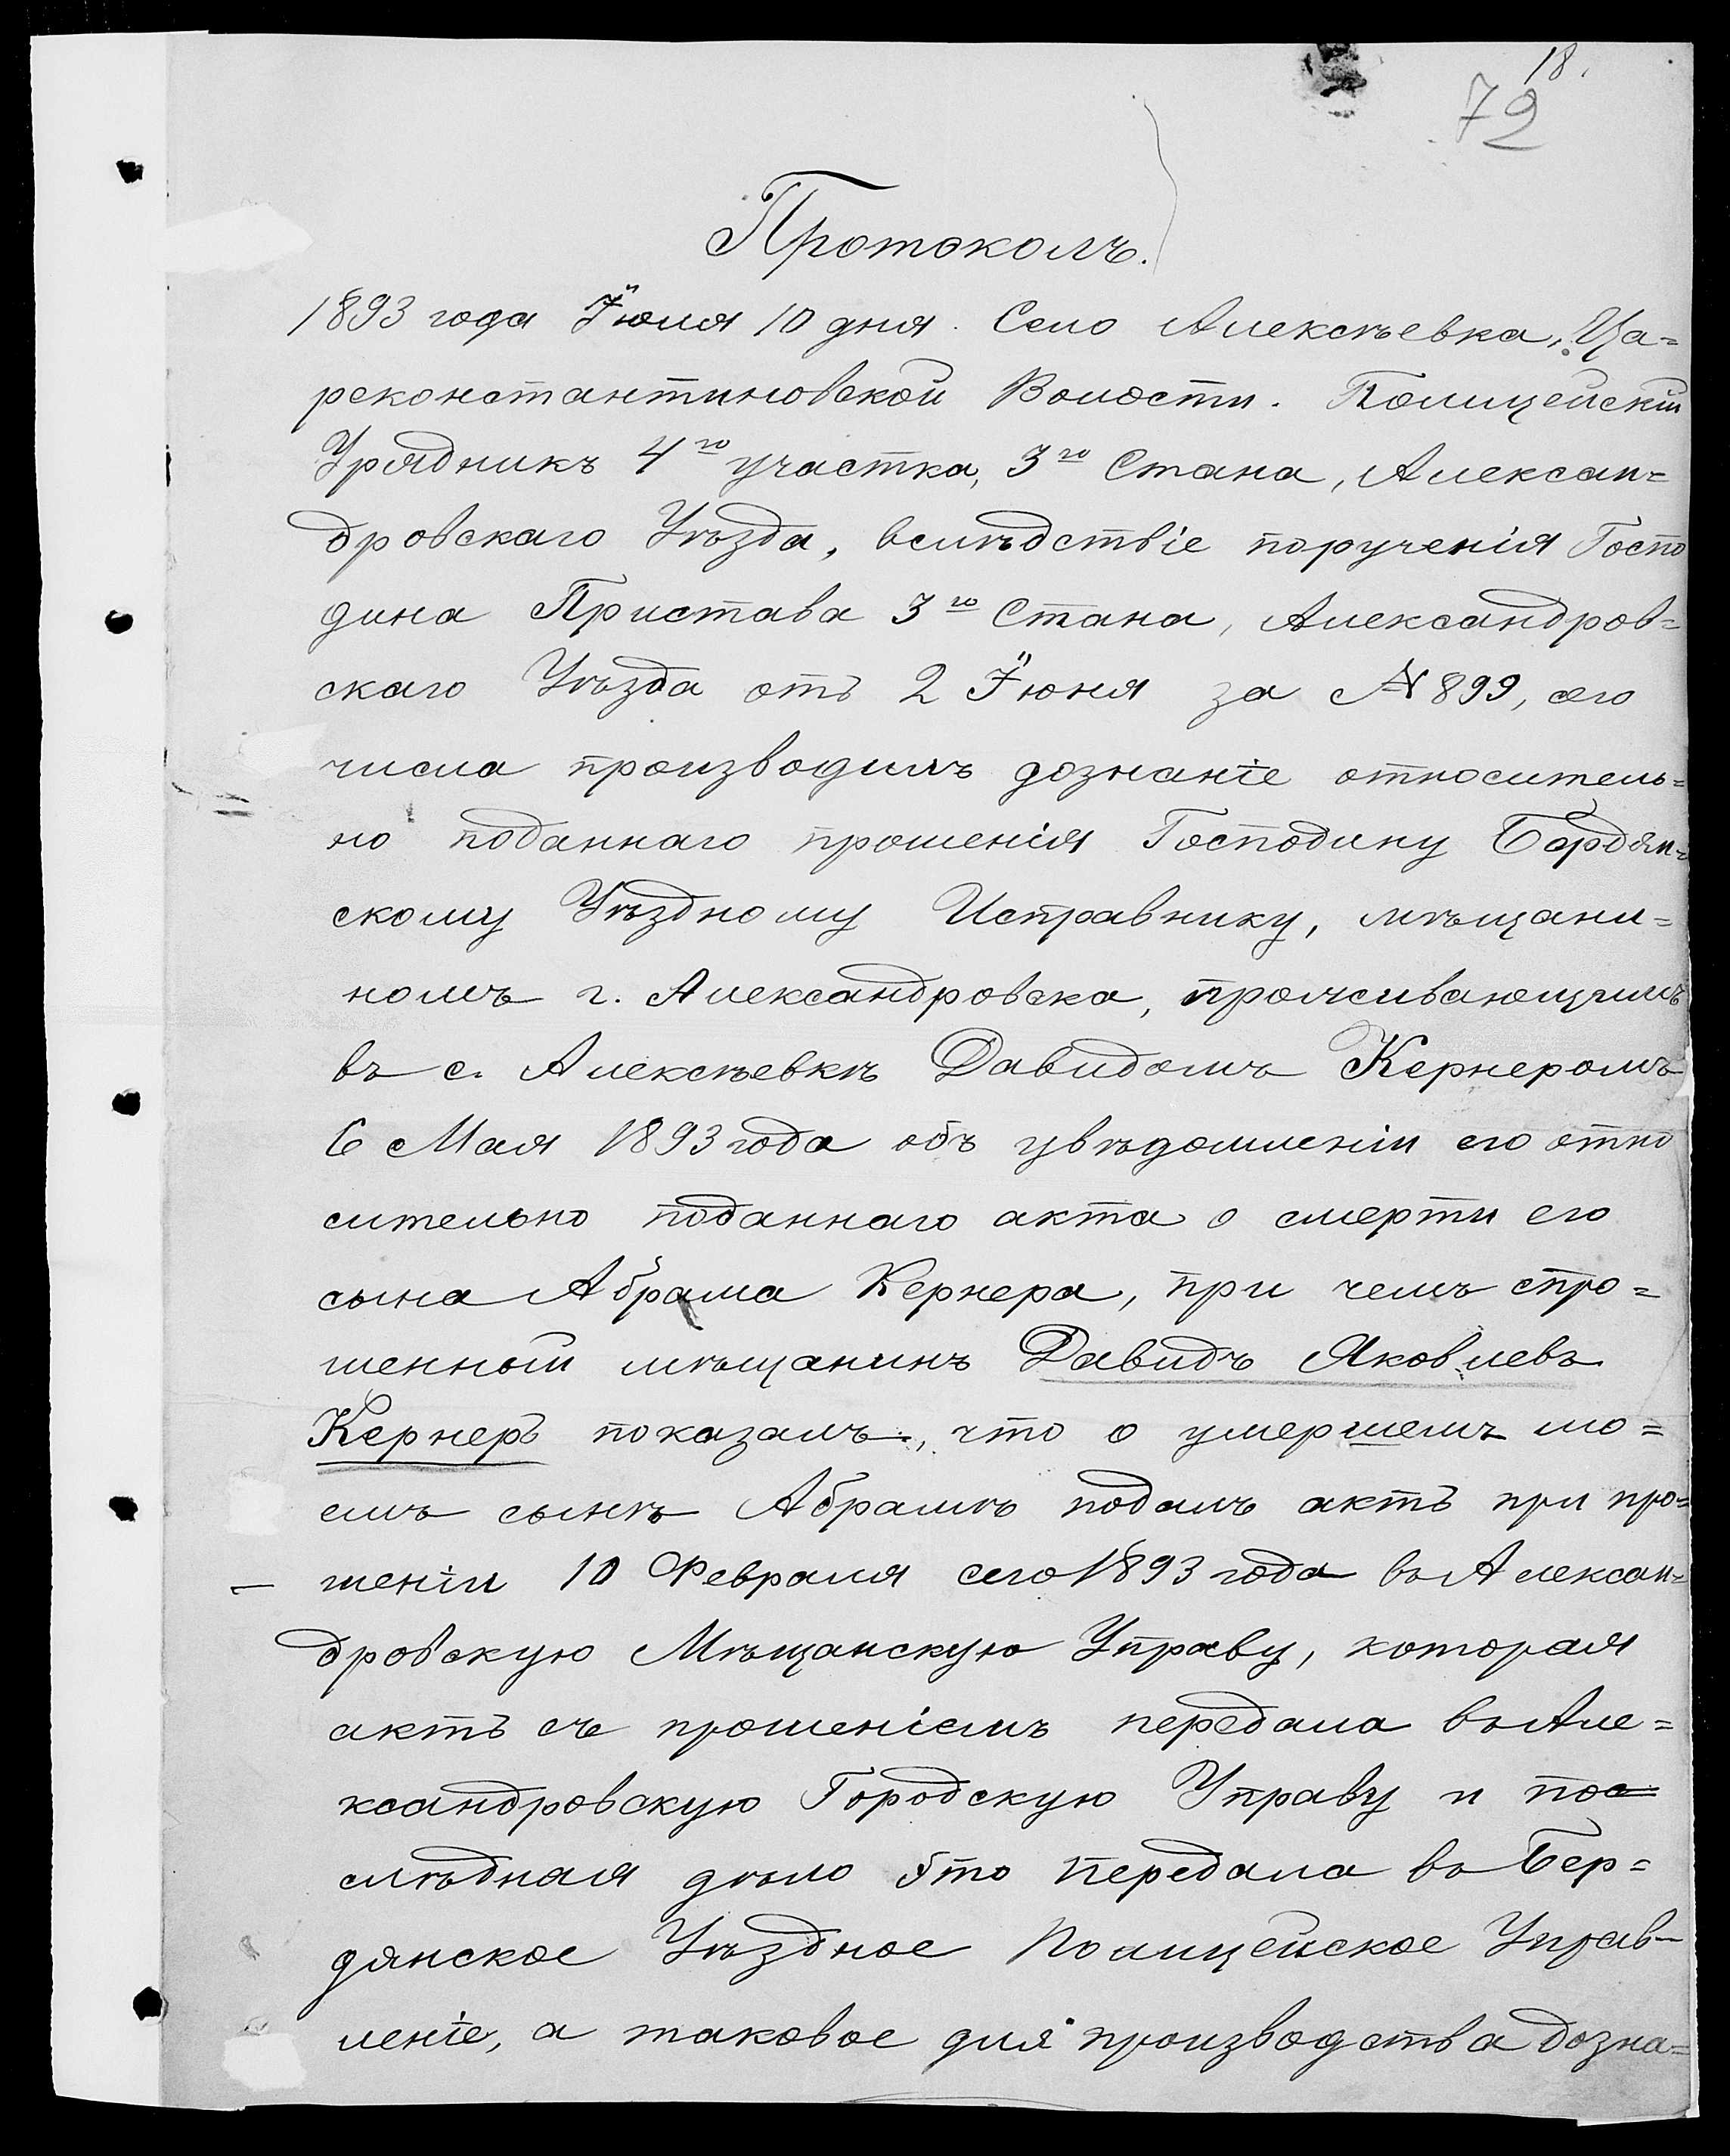 18.
72
Протоколъ.
1893 года Іюля 10 дня. Село Алексѣевка, Ца=
реконстантиновской Волости. Полицейскій
Урядникъ 4го участка, 3го Стана, Алексан=
дровскаго Уѣзда, вслѣдствіе порученія Госпо
дина Пристава 3го Стана, Александров=
скаго Уѣзда отъ 2 Іюня за № 899, сего
числа производилъ дознаніе относитель=
но поданнаго прошенія Господину Бердян=
скому Уѣздному Исправнику, мѣщани=
номъ г. Александровска, проживающимъ
въ с. Алексѣевкѣ Давидомъ Кернеромъ
6 Мая 1893 года объ увѣдомленіи его отно
сительно поданнаго акта о смерти его
сына Абрама Кернера, при чемъ спро=
шенный мѣщанинъ Давидъ Яковлевъ
Кернеръ показалъ, что о умершемъ мо=
емъ сынѣ Абрамѣ подалъ актъ при про=
шеніи 10 Февраля сего 1893 года въ Алексан=
дровскую Мѣщанскую Управу, которая
актъ съ прошеніемъ передала въ Але=
ксандровскую Городскую Управу и пос=
слѣдная дѣло это передала въ Бер=
дянское Уѣздное Полицейское Управ-
леніе, а таковое для производства дозна=